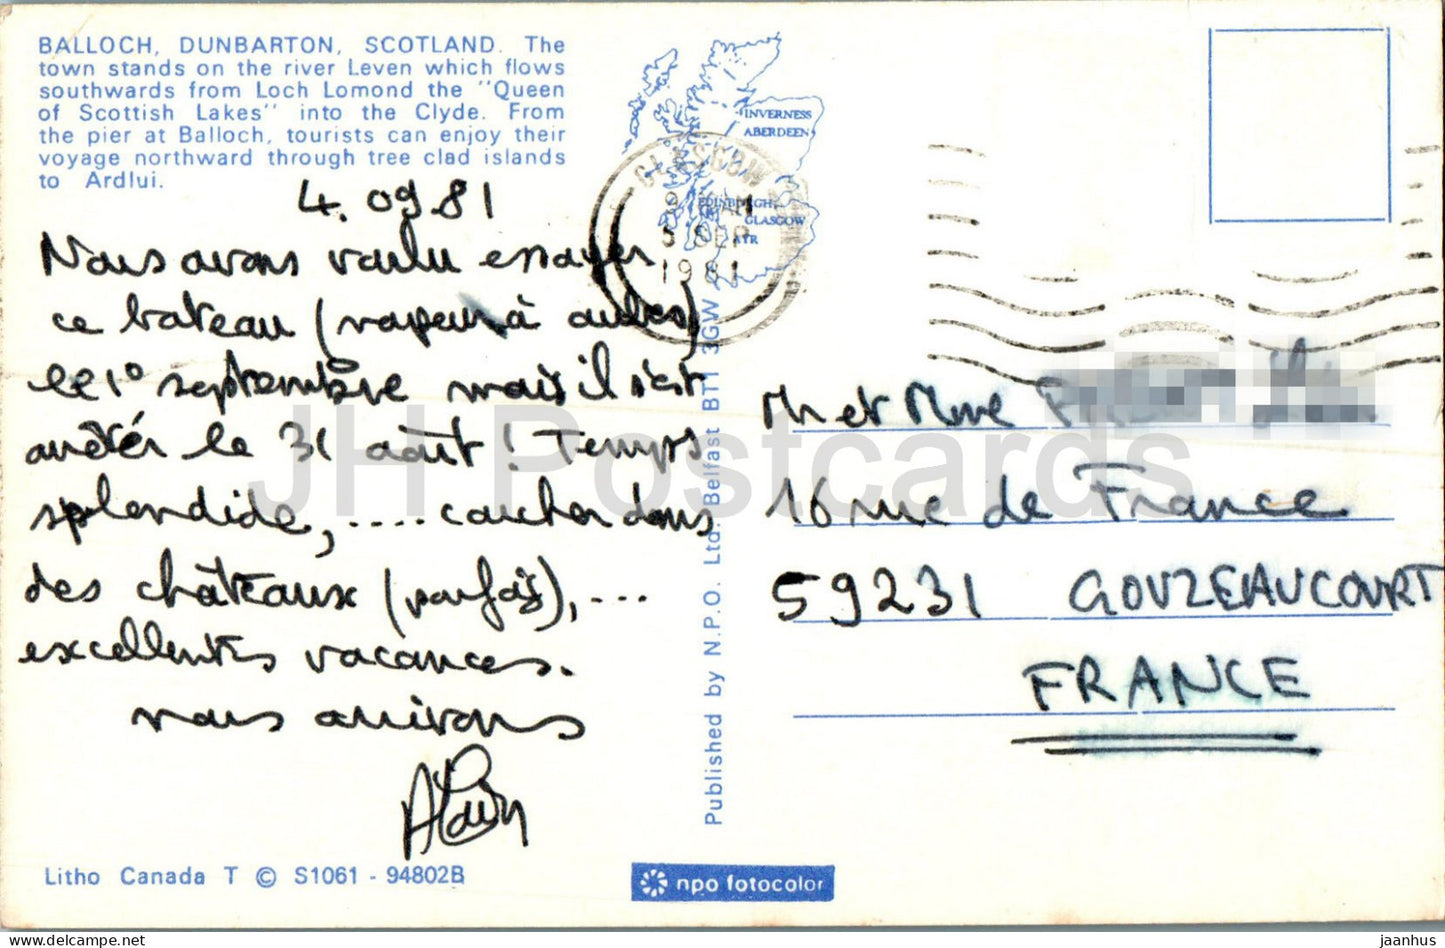 BALLOCH, DUNBARTON, SCOTLAND. The
town stands on the river Leven which flows
southwards from Loch Lomond the "Queen
of Scottish Lakes" into the Clyde. From
the pier at Balloch, tourists can enjoy their
voyage northward through tree clad islands
to Ardlui.
4.09.81
Nous avons voulu essayer
ce bateau (vapeur à aubes)
le 1° septembre mais il s'est
arrêtér le 31 août ! Temps
splendide, .... coucher dans
des châteaux (parfois), ...
excellentes vacances.
nous arrivons
Alain
Litho Canada T © S1061 - 94802B
INVERNESS
ABERDEEN
EDINBURGH
GLASGOW
AYR
GLASGOW
5 SEP
1981
Published by N.P.O. Ltd. Belfast BT1 3GW
npo fotocolor
Mr et Mme
16 rue de France
59231 GOUZEAUCOURT
FRANCE
JH Postcards
jaanhus — delcampe.net